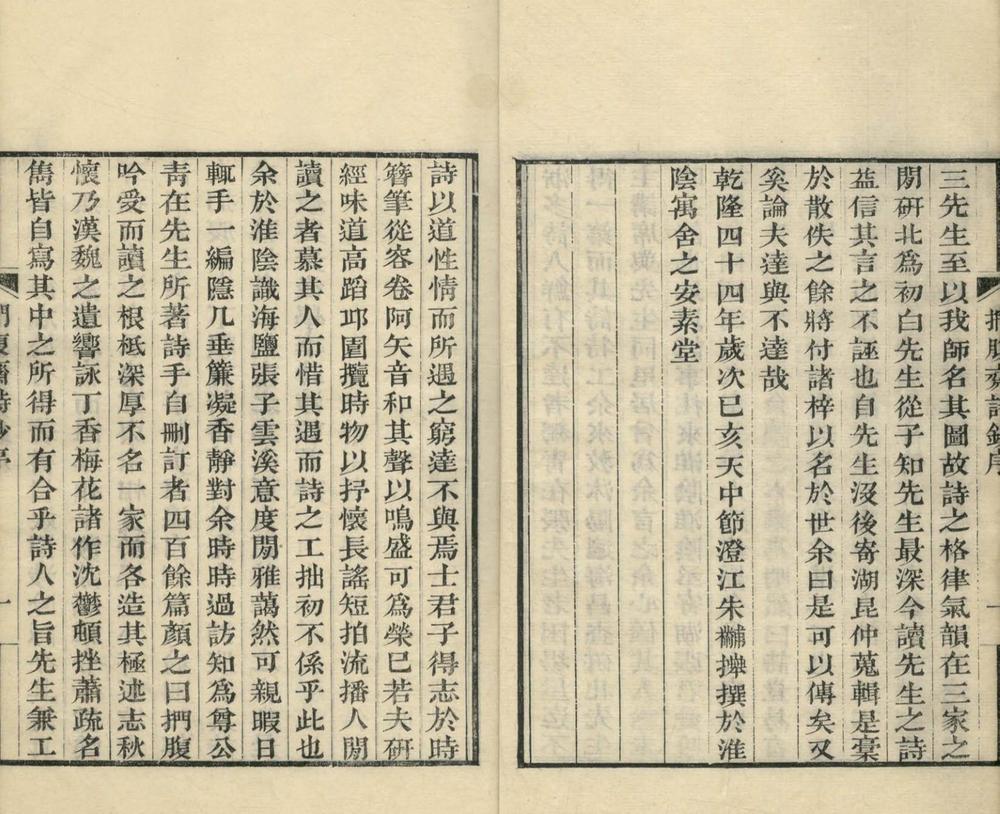 捫腹齋詩鈔序
三先生至以我師名其圖故詩之格律氣韻在三家之
間研北為初白先生從子知先生最深今讀先生之詩
益信其言之不誣也自先生沒後寄湖昆仲蒐輯是稾
於散佚之餘將付諸梓以名於世余曰是可以傳矣又
奚論夫達與不達哉
乾隆四十四年歲次己亥天中節澄江朱黼撰於淮
陰寓舍之安素堂
詩以道性情而所遇之窮達不與焉士君子得志於時
簪筆從容卷阿矢音和其聲以鳴盛可為榮已若夫研
經味道高蹈邱園攬時物以抒懷長謠短拍流播人間
讀之者慕其人而惜其遇而詩之工拙初不係乎此也
余於淮陰識海鹽張子雲溪意度閒雅藹然可親暇日
輒手一編隱几垂簾凝香靜對余時時過訪知為尊公
青在先生所著詩手自刪訂者四百餘篇顏之曰捫腹
吟受而讀之根柢深厚不名一家而各造其極述志秋
懷乃漢魏之遺響詠丁香梅花諸作沈鬱頓挫蕭疏名
雋皆自寫其中之所得而有合乎詩人之旨先生兼工
捫腹齋詩鈔序
一